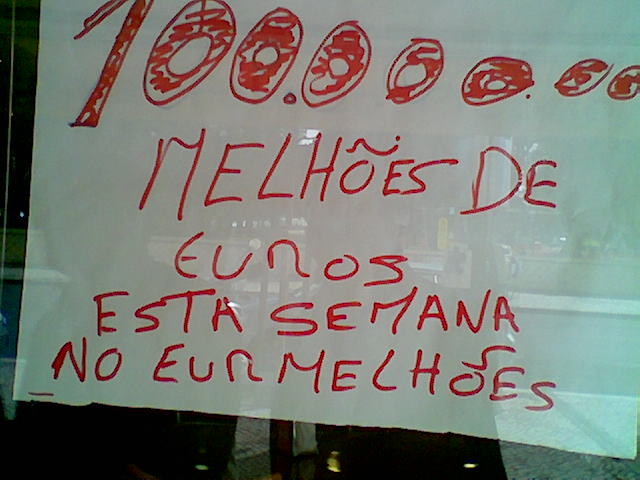 100.000.000
MELHÕES DE
EUROS
ESTA SEMANA
NO EURMELHÕES